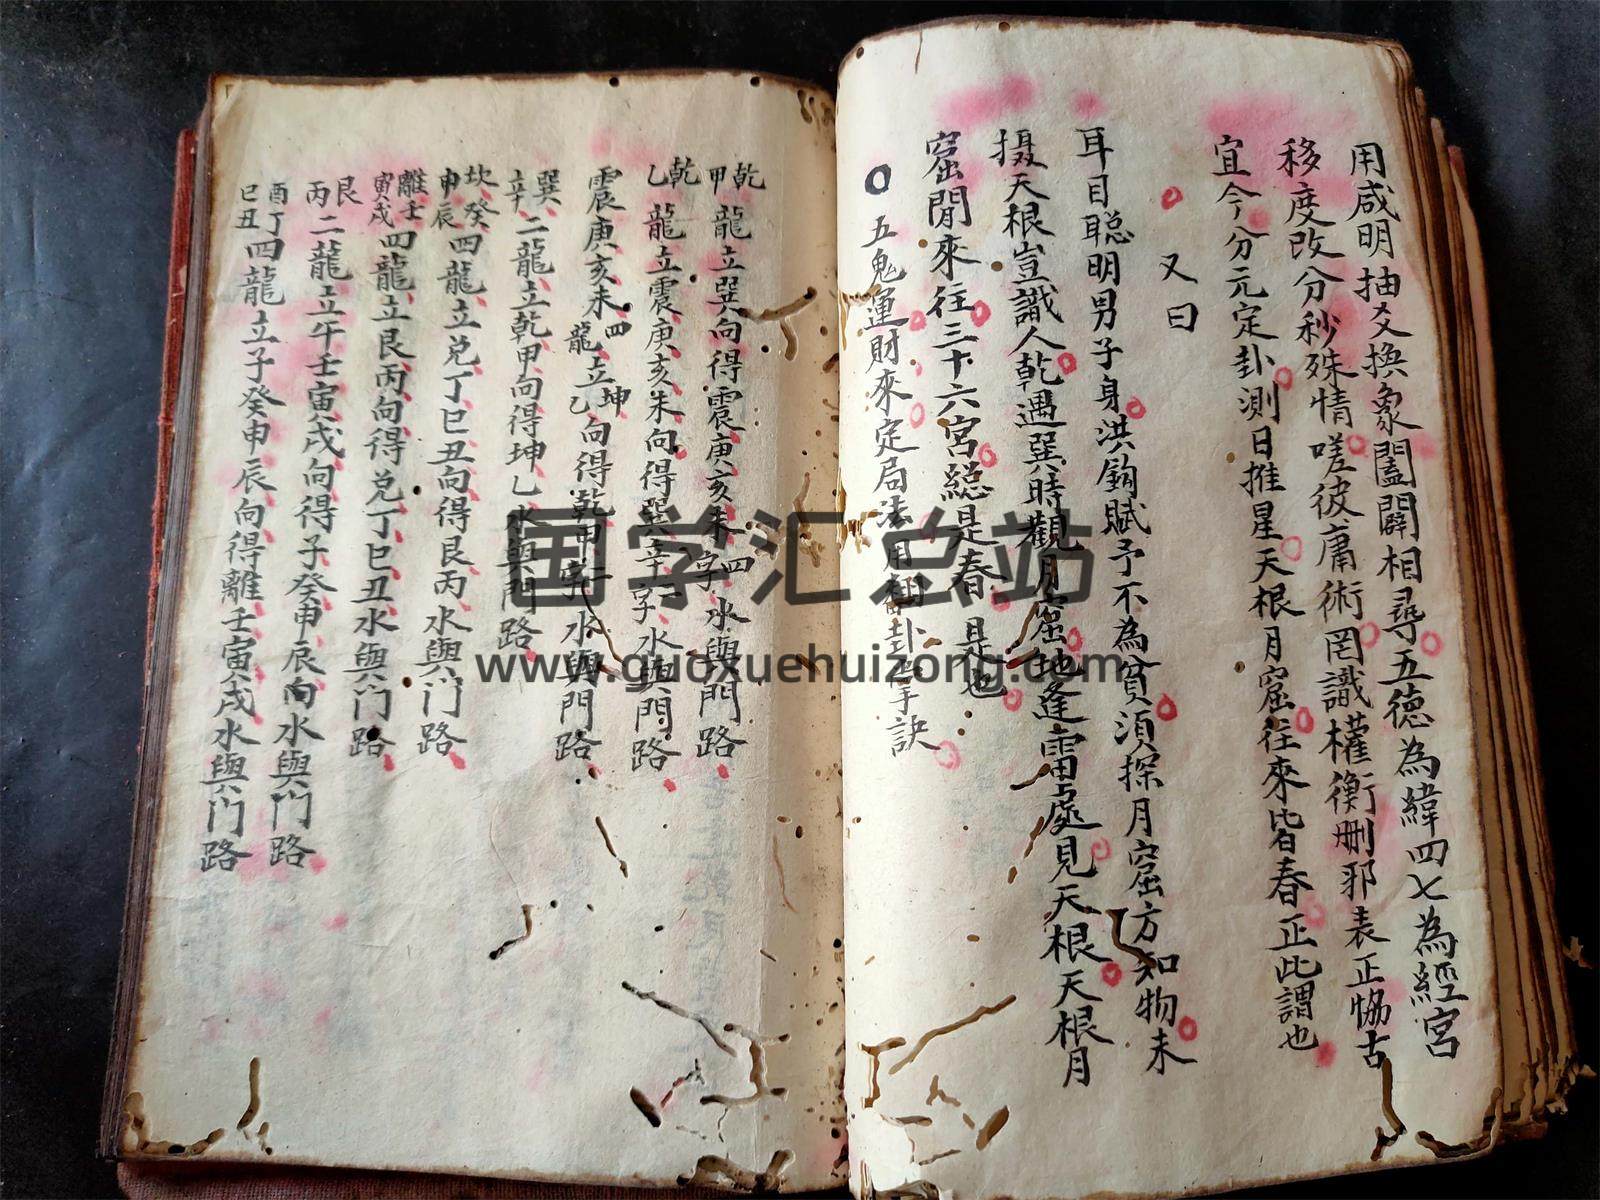 用咸明抽爻換象闔闢相尋五德為緯四七為經宮
移度改分秒殊情嗟彼庸術罔識權衡刪邪表正恊古
宜今分元定卦測日推星天根月窟往來皆春正此謂也
又曰
耳目聪明男子身洪鈎賦予不為貧湏探月窟方知物未
摄天根豈識人乾遇巽時觀月窟地逢雷處見天根天根月
窟閒來往三十六宮緫是春是也
五鬼運財來定局法用翻卦掌訣
乾甲龍立巽向得震庚亥未四字水與門路
乾乙龍立震庚亥朱向得巽辛字水與門路
震庚亥未四龍立坤乙向得乾甲字水與門路
巽辛二龍立乾甲向得坤乙水與門路
坎癸申辰四龍立兑丁巳丑向得艮丙水與門路
離壬寅戌四龍立艮丙向得兑丁巳丑水與門路
艮丙二龍立午壬寅戌向得子癸申辰向水與門路
酉丁巳丑四龍立子癸申辰向得離壬寅戌水與門路
国学汇总站
www.guoxuehuizong.com